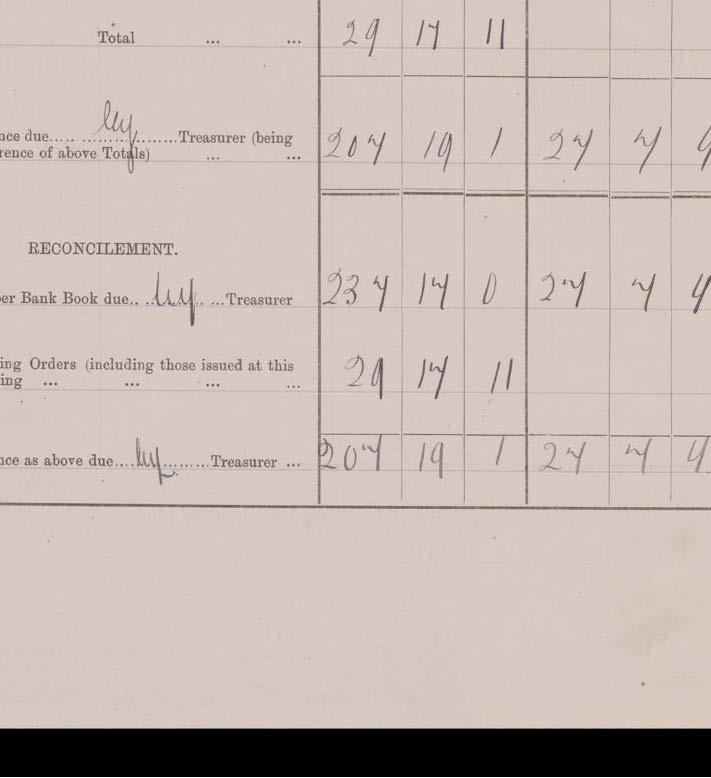 Total ... ... 29 17 11
nce due..... by ........Treasurer (being
rence of above Totals) ... ... 207 19 1 27 7 4
RECONCILEMENT.
er Bank Book due.. by ...Treasurer 237 17 0 27 7 4
ing Orders (including those issued at this
ing ... ... ... ... 29 17 11
nce as above due.... by ........Treasurer ... 207 19 1 27 7 4